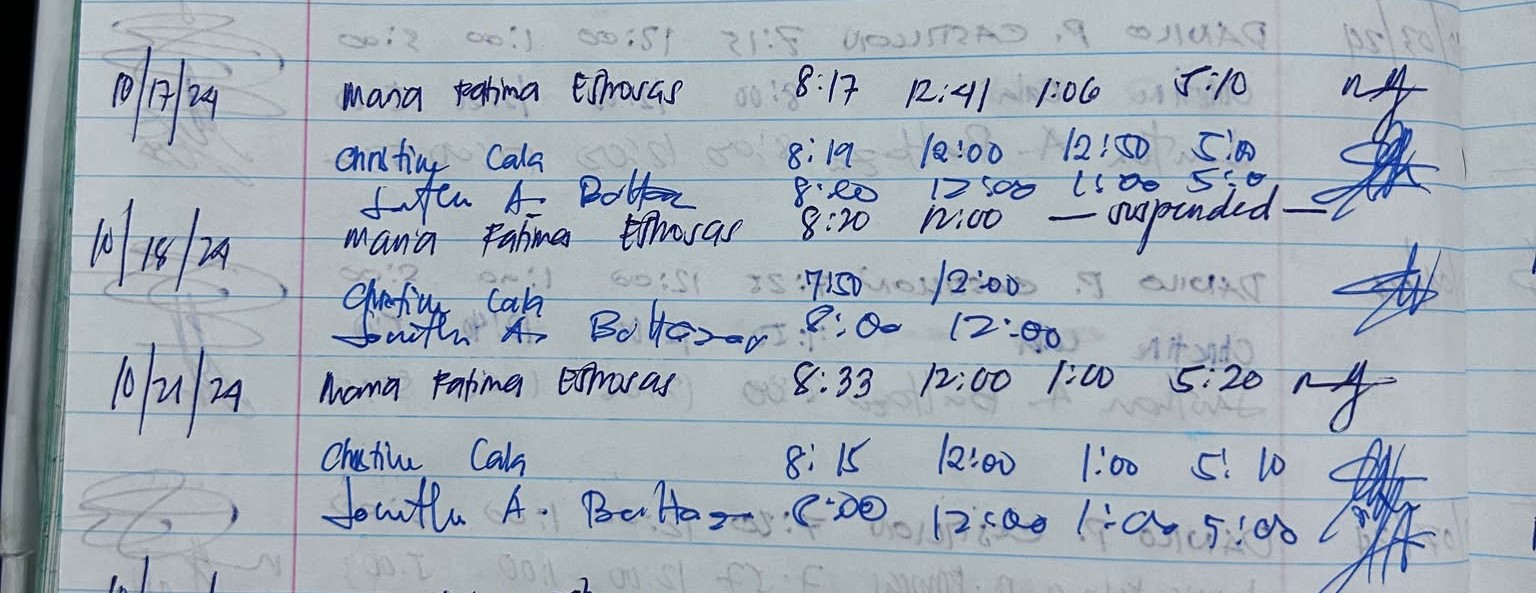 10/17/24 Maria Fatima Estrosas 8:17 12:41 1:06 5:10
Christine Cala 8:19 12:00 12:50 5:00
A. 8:00 12:00 1:00 5:0
10/18/24 Maria Fatima Estrosas 8:20 12:00 — suspended —
Christine Cala 7:50 12:00
A. Baltazar 8:00 12:00
10/21/24 Maria Fatima Estrosas 8:33 12:00 1:00 5:20
Christine Cala 8:15 12:00 1:00 5:10
A. Baltazar 8:00 12:00 1:00 5:00